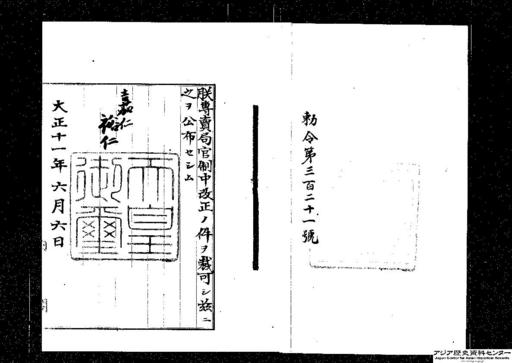 勅令第三百二十一號
朕專賣局官制中改正ノ件ヲ裁可シ茲ニ
之ヲ公布セシム
嘉仁
裕仁
天皇
御璽
大正十一年六月六日
アジア歴史資料センター
Japan Center for Asian Historical Records